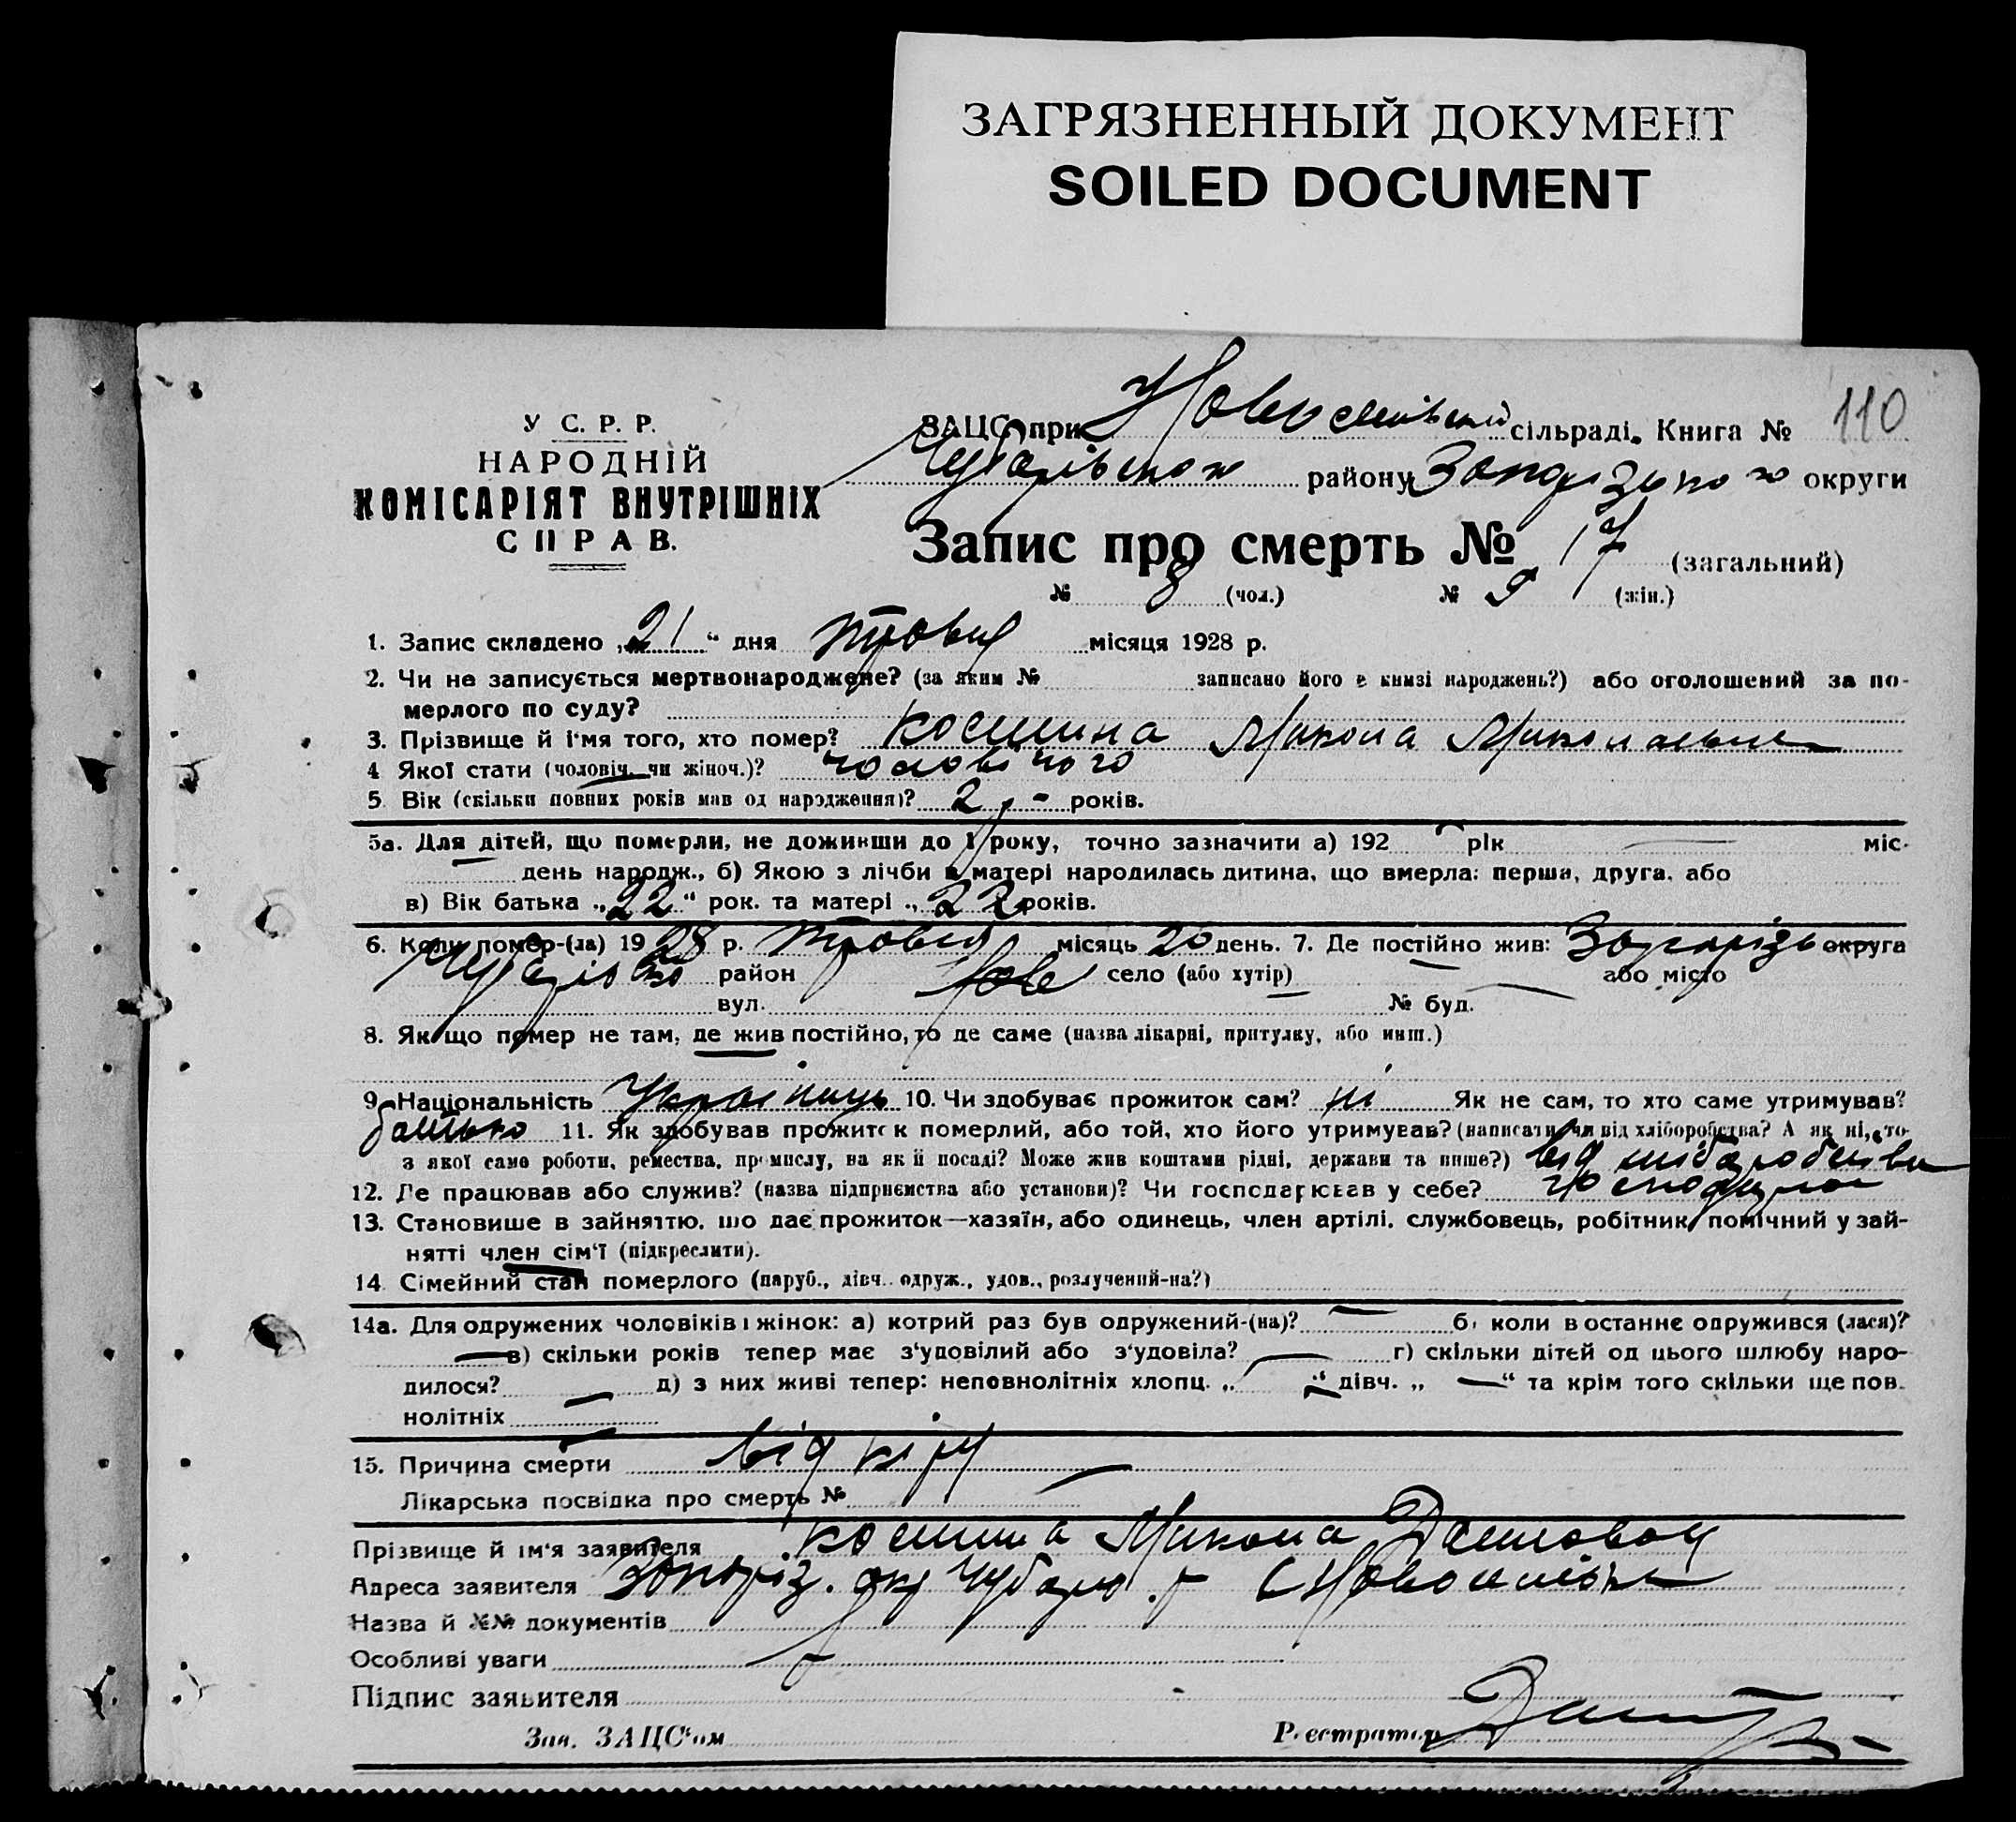 ЗАГРЯЗНЕННЫЙ ДОКУМЕНТ
SOILED DOCUMENT
110
У С. Р. Р.
НАРОДНІЙ
КОМІСАРІЯТ ВНУТРІШНІХ
СПРАВ.
ЗАЦС при сільраді. Книга №
району округи
Запис про смерть № 17 (загальний)
№ 8 (чол.) № 9 (жін.)
1. Запис складено „21“ дня травня місяця 1928 р.
2. Чи не записується мертвонароджене? (за яким № записано його в книзі народжень?) або оголошений за по-
мерлого по суду?
3. Прізвище й імя того, хто помер? Микола Миколаевич
4 Якої стати (чоловіч. чи жіноч.)? чоловічого
5 Вік (скільки повних років мав од народження)? 2 - років.
5а. Для дітей, що померли, не доживши до 1 року, точно зазначити а) 192 рік міс.
день народж., б) Якою з лічби в матері народилась дитина, що вмерла: перша, друга, або
в) Вік батька „22“ рок. та матері „22 років.
6. Коли помер-(ла) 1928 р. травня місяць 20 день. 7. Де постійно жив: округа
район село (або хутір) або місто
вул. № буд.
8. Якщо помер не там, де жив постійно, то де саме (назва лікарні, притулку, або инш.)
9. Національність Українець 10. Чи здобуває прожиток сам? ні Як не сам, то хто саме утримував?
батько 11. Як здобував прожиток померлий, або той, хто його утримував? (написати, чи від хліборобства? А як ні, то
з якої саме роботи, ремества, промислу, на якій посаді? Може жив коштами рідні, держави та инше?) від хліборобства
12. Де працював або служив? (назва підприємства або установи)? Чи господарював у себе?
13. Становище в зайняттю, що дає прожиток—хазяїн, або одинець, член артілі, службовець, робітник помічний у зай-
нятті член сім‘ї (підкреслити).
14. Сімейний стан померлого (паруб., дівч. одруж., удов., розлучений-на?)
14а. Для одружених чоловіків і жінок: а) котрий раз був одружений-(на)? б) коли в останнє одружився (лася)?
в) скільки років тепер має з‘удовілий або з‘удовіла? г) скільки дітей од цього шлюбу наро-
дилося? д) з них живі тепер: неповнолітніх хлопц. „ “ дівч. „ — “ та крім того скільки ще пов.
нолітніх
15. Причина смерти від кіру
Лікарська посвідка про смерть №
Прізвище й ім‘я заявителя Микола
Адреса заявителя Запоріз. окр Чубарів. р
Назва й №№ документів
Особливі уваги
Підпис заявителя
Зав. ЗАЦС‘ом Реєстратор